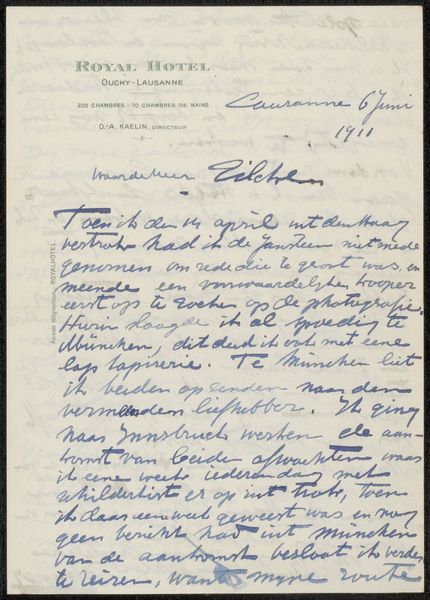 ROYAL HOTEL
OUCHY-LAUSANNE
200 CHAMBRES - 70 CHAMBRES DE BAINS
O.-A. KAELIN, DIRECTEUR
Lausanne 6 Juni
1911
Waarde Heer
Toen ik den 14 april uit den Haag
vertrok had ik de Jansteen niet mede
genomen om rede die te groot was en
meende een voorwaardelijke kooper
eerst op te zoeken op de photografie.
Hierin slaagde ik al spoedig te
München, dit deed ik ook met eene
lap tapiserie. Te München liet
ik beiden opzenden naar den
liefhebber. Ik ging
naar Innsbruck werken de aan-
komst van beide afwachten was
ik eene week iederen dag met
schilderkist er op uit trok, toen
ik daar een week geweest was en nog
geen bericht had uit München
van de aankomst besloot ik verder
te reizen, want mijne route
Adresse télégraphique: ROYALHOTEL